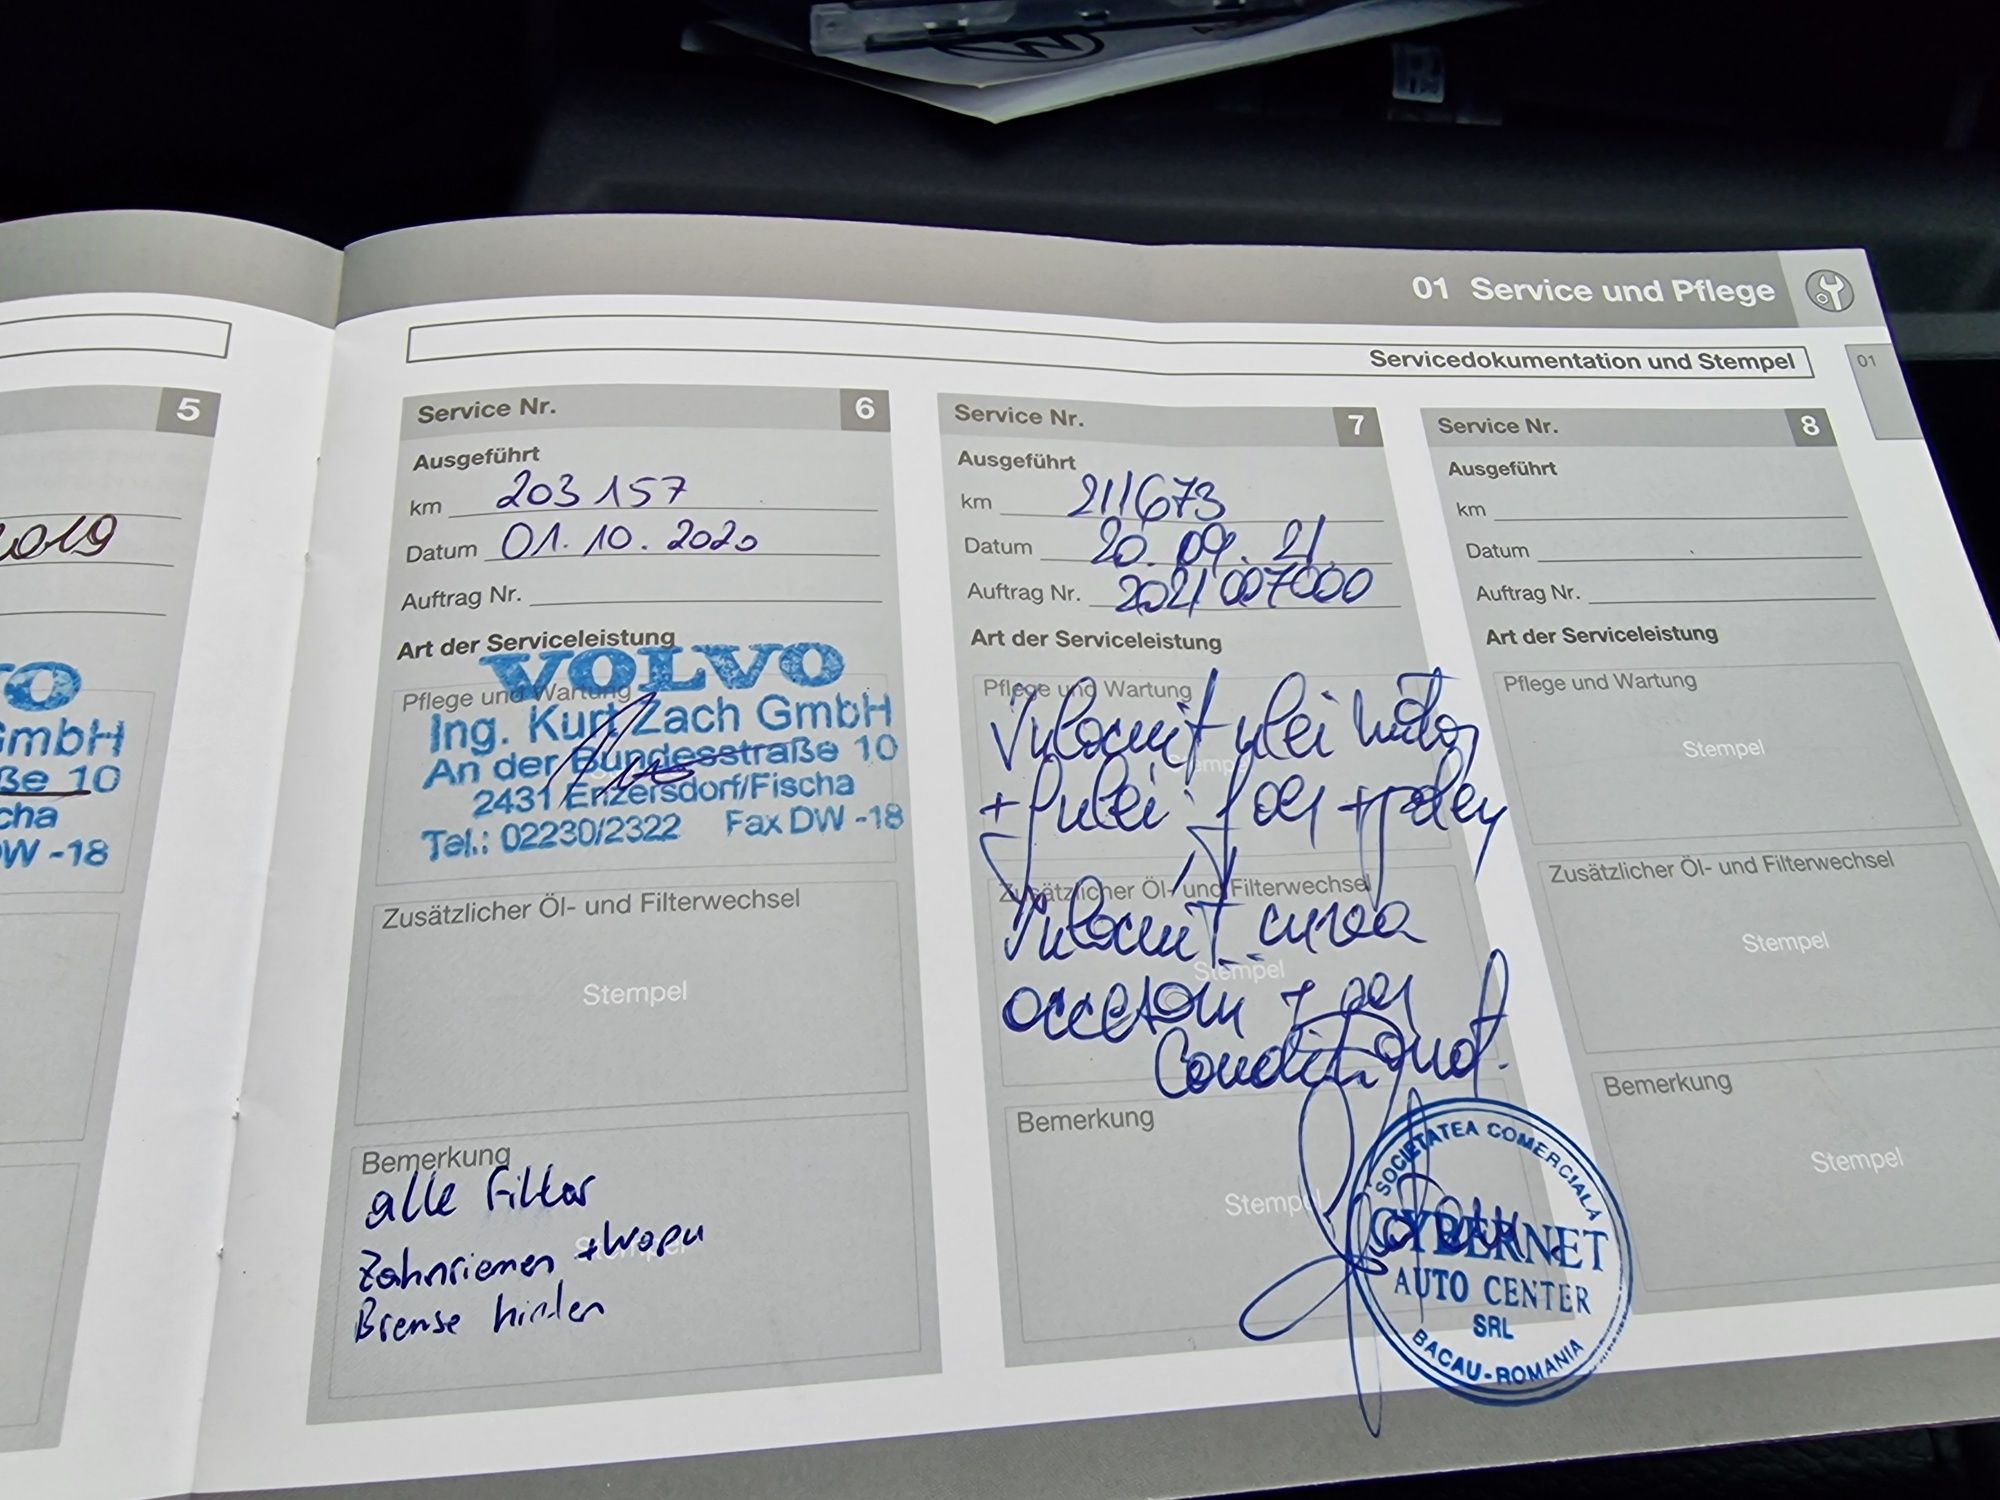 01 Service und Pflege
Servicedokumentation und Stempel
01
5
2019
VO
GmbH
ße 10
cha
DW -18
Service Nr. 6
Ausgeführt
km 203 157
Datum 01.10.2020
Auftrag Nr.
Art der Serviceleistung
Pflege und Wartung
VOLVO
Ing. Kurt Zach GmbH
An der Bundesstraße 10
2431 Enzersdorf/Fischa
Tel.: 02230/2322 Fax DW -18
Zusätzlicher Öl- und Filterwechsel
Stempel
Bemerkung
Stempel
alle Filter
Zahnriemen + Wapu
Bremse hinten
Service Nr. 7
Ausgeführt
km 211673
Datum 20.09.21
Auftrag Nr. 2021007000
Art der Serviceleistung
Pflege und Wartung
Stempel
Inlocuit ulei motor
+ filtrei: aer + polen
Zusätzlicher Öl- und Filterwechsel
Stempel
Inlocuit curea
accesorii + aer
Conditionat.
Bemerkung
Stempel
SOCIETATEA COMERCIALA
CYBERNET
AUTO CENTER
SRL
BACAU-ROMANIA
Service Nr. 8
Ausgeführt
km
Datum
Auftrag Nr.
Art der Serviceleistung
Pflege und Wartung
Stempel
Zusätzlicher Öl- und Filterwechsel
Stempel
Bemerkung
Stempel